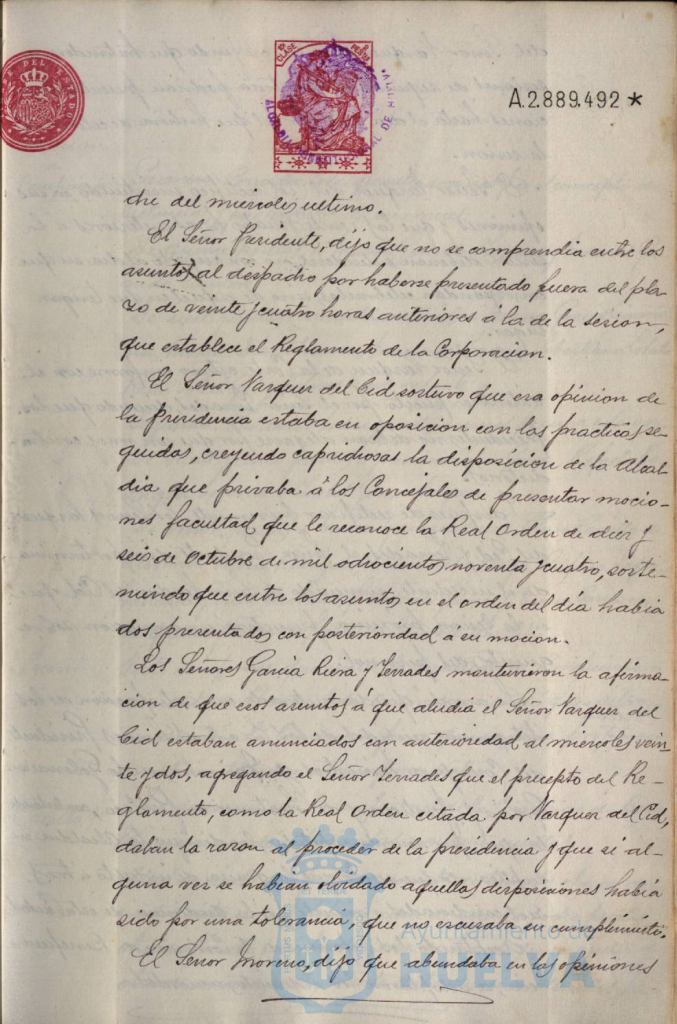 DEL ESTADO
10ª CLASE
PESETA
A.2.889.492 *
che del miercoles ultimo.
El Señor Presidente, dijo que no se comprendia entre los
asuntos al despacho por haberse presentado fuera del pla-
zo de veinte y cuatro horas anteriores á la de la sesion,
que establece el Reglamento de la Corporacion.
El Señor Vazquez del Cid sostuvo que esa opinion de
la presidencia estaba en oposicion con las practicas se-
guidas, creyendo caprichosas la disposicion de la Alcal-
dia que privaba á los Concejales de presentar mocio-
nes facultad que le reconoce la Real Orden de diez y
seis de Octubre de mil ochocientos noventa y cuatro, soste-
niendo que entre los asuntos en el orden del día habia
dos presentados con posterioridad á su mocion.
Los Señores Garcia Riera y Terrades mantuvieron la afirma-
cion de que esos asuntos á que aludia el Señor Vazquez del
Cid estaban anunciados con anterioridad al miercoles vein-
te y dos, agregando el Señor Terrades que el precepto del Re-
glamento, como la Real Orden citada por Vazquez del Cid,
daban la razon al proceder de la presidencia y que si al-
guna vez se habian olvidado aquellas disposiciones habia
sido por una tolerancia, que no escusaba su cumplimiento.
El Señor Moreno, dijo que abundaba en las opiniones
Ayuntamiento de
HUELVA